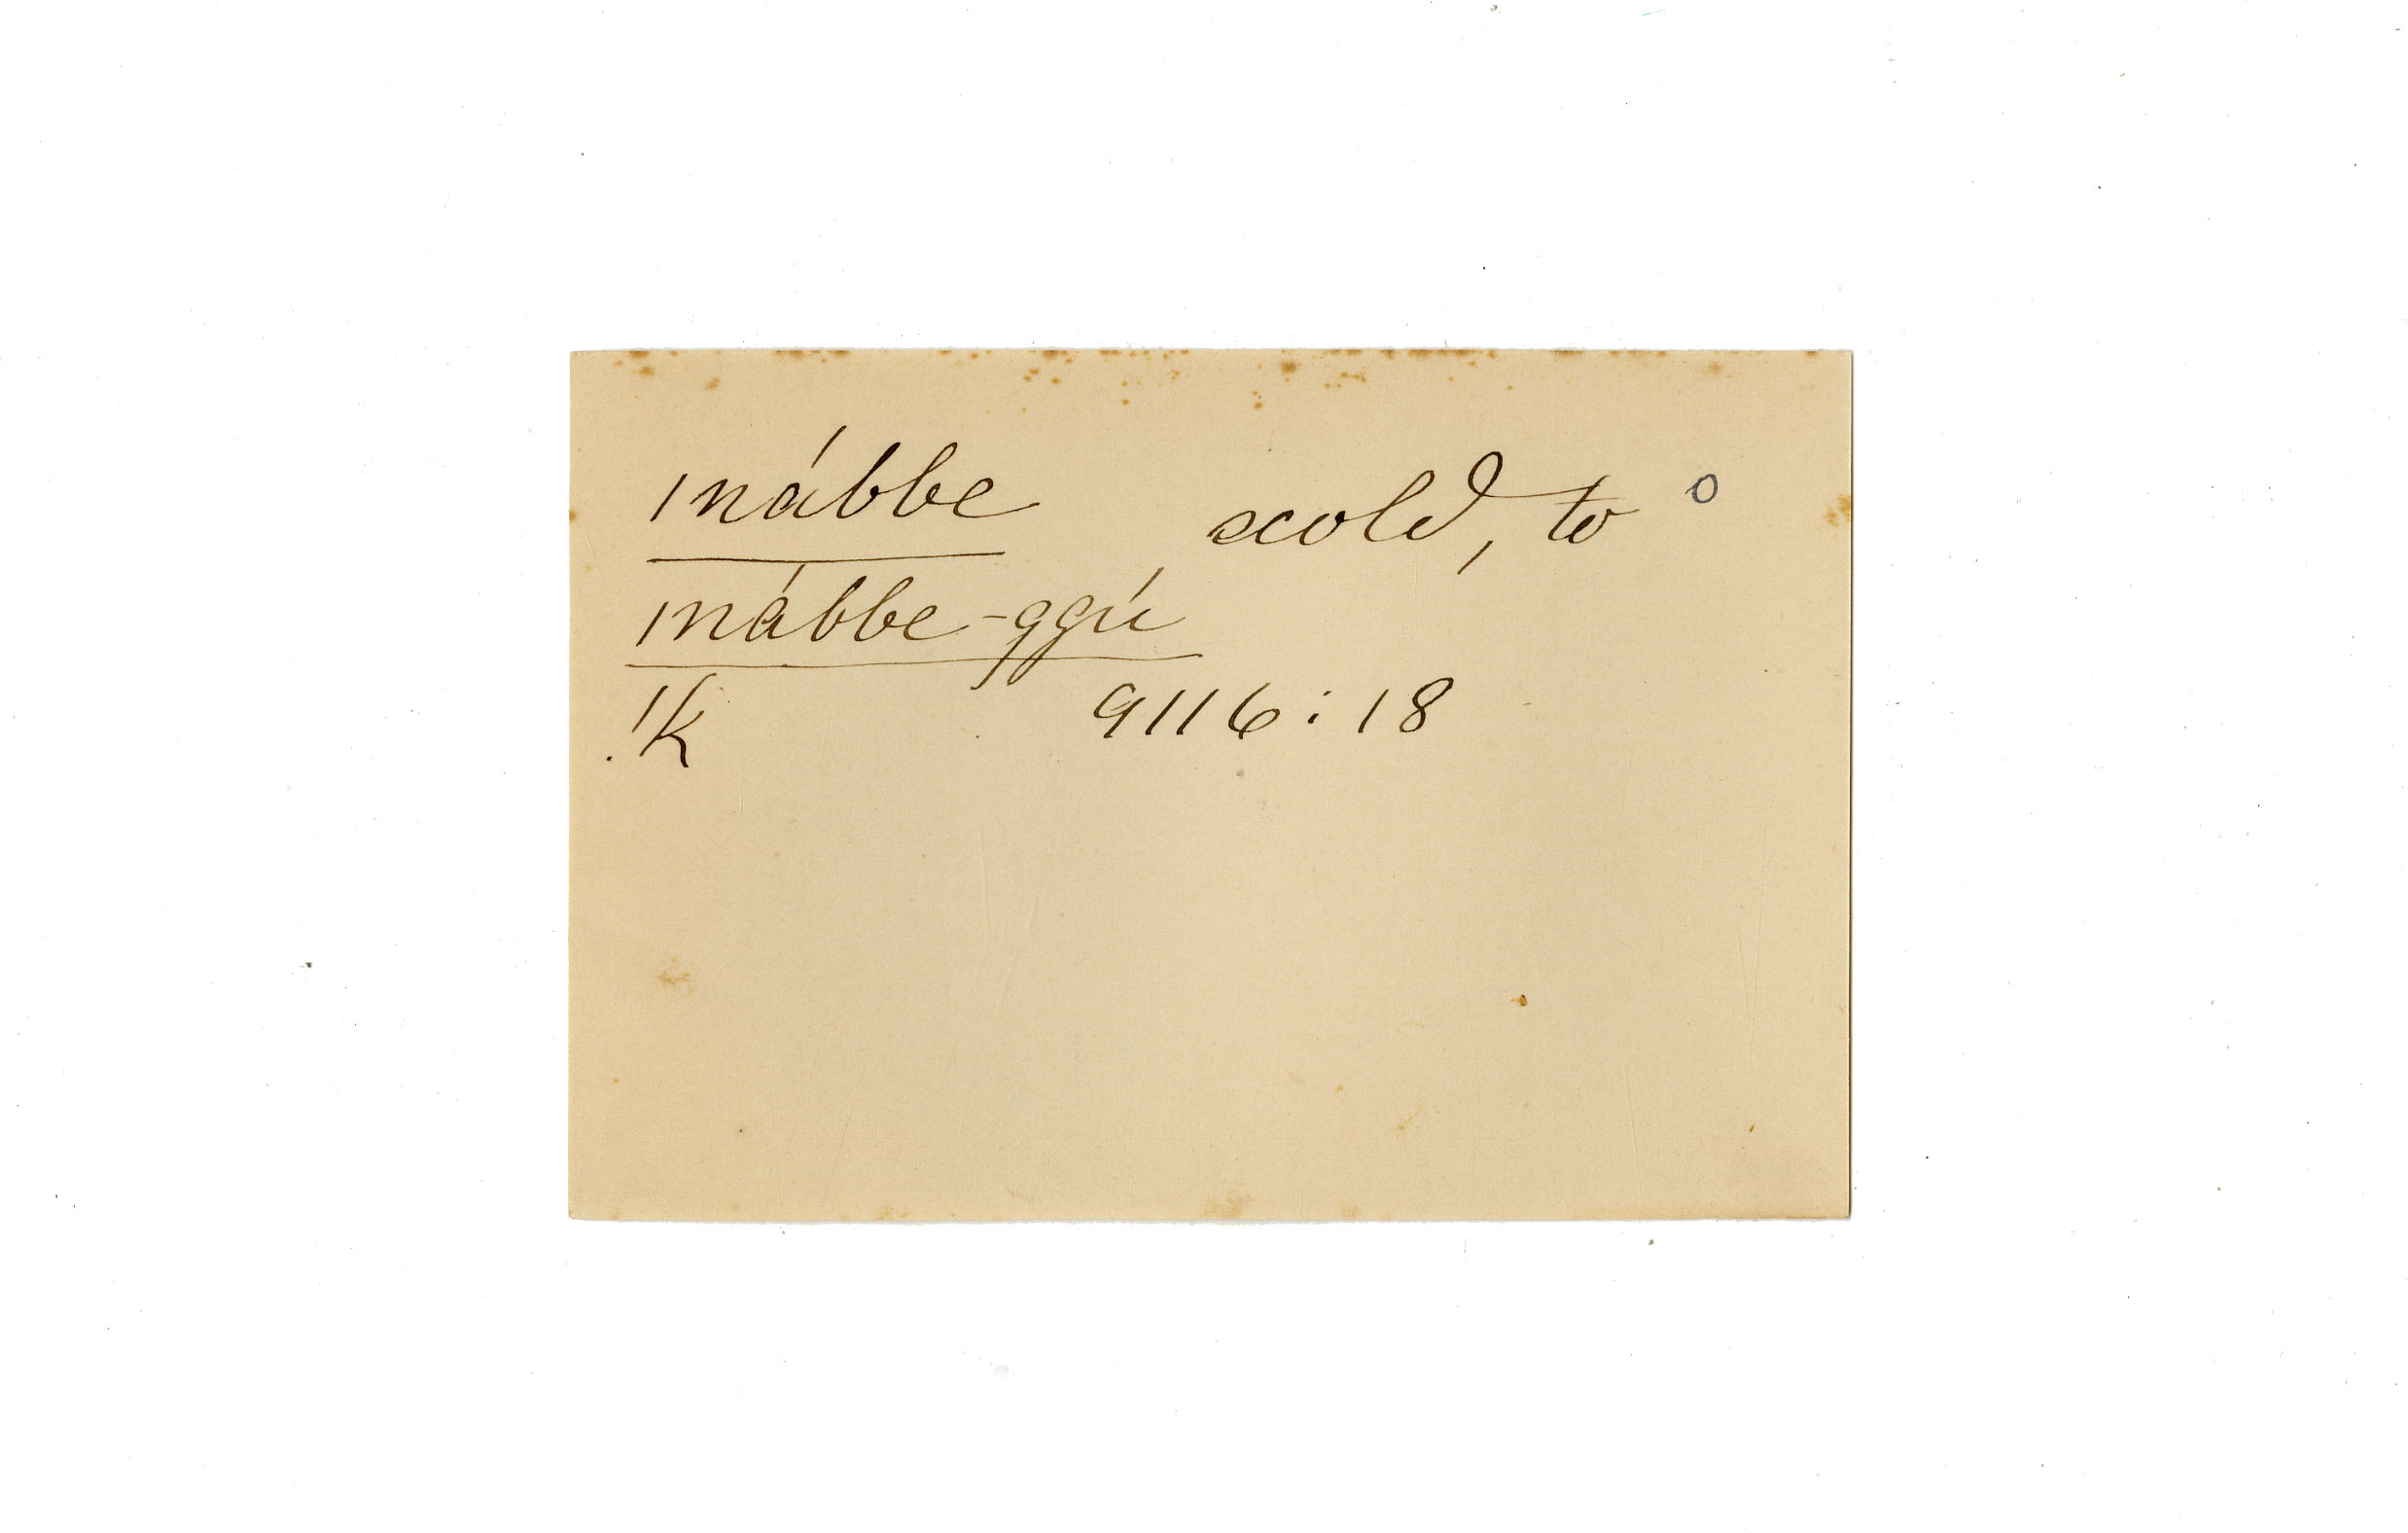 ǀnábbe scold, to o
ǀnábbe-ggú
!k 9116:18